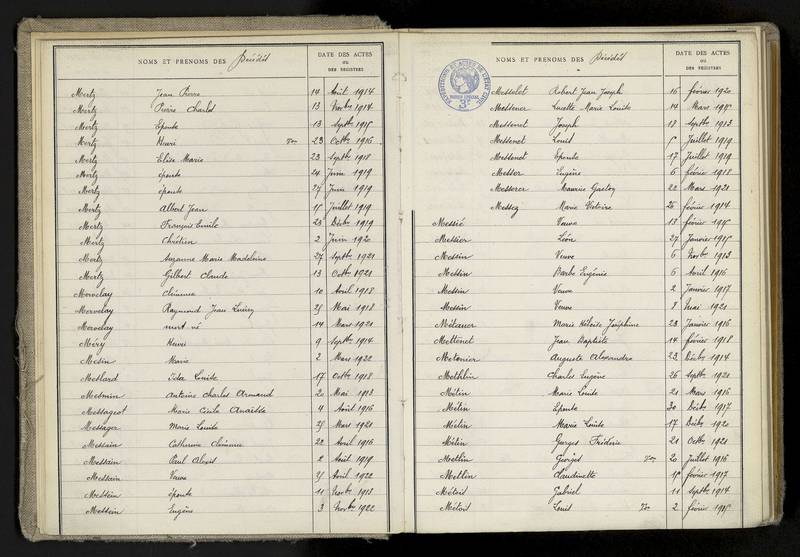 NOMS ET PRENOMS DES Décédés
DATE DES ACTES
OU
DES REGISTRES
Mertz Jean Pierre 14 Août 1914
Mertz Pierre Charles 13 Novbre 1914
Mertz Epouse 13 Septbre 1915
Mertz Henri 23 Octbre 1916
Mertz Elise Marie 23 Septbre 1918
Mertz épouse 24 Juin 1919
Mertz épouse 27 Juin 1919
Mertz Albert Jean 15 Juillet 1919
Mertz François Emile 23 Décbre 1919
Mertz Chrétien 2 Juin 1920
Mertz Suzanne Marie Madeleine 27 Septbre 1921
Mertz Gilbert Claude 13 Octbre 1921
Mervelay 10 Avril 1918
Mervelay Raymond Jean 25 Mai 1918
Mervelay mort né 14 Mars 1921
Méry Henri 9 Septbre 1914
Mesin Marie 2 Mars 1922
Meslard Louise 17 Octbre 1918
Mesmin Antoine Charles Armand 20 Mai 1913
Messageot Marie Cécile Anaïsse 4 Août 1916
Messager Marie Louise 25 Mars 1921
Messain Catherine 22 Avril 1916
Messain Paul 2 Août 1919
Messain Veuve 25 Avril 1922
Messein épouse 11 Novbre 1918
Messein Eugène 3 Novbre 1922
NOMS ET PRENOMS DES Décédés
DATE DES ACTES
OU
DES REGISTRES
Messelet Robert Jean Joseph 16 février 1920
Messener Lucette Marie Louise 14 Mars 1915
Messenet Joseph 18 Septbre 1913
Messenet Louis 5 Juillet 1919
Messenet Epouse 17 Juillet 1919
Messer Eugène 6 février 1918
Messerer Maurice Gaston 22 Mars 1921
Messez Marie Victoire 26 février 1914
Messié Veuve 13 février 1915
Messier Léon 27 Janvier 1915
Messin Veuve 6 Novbre 1913
Messin Barbe Eugénie 6 Avril 1916
Messin Veuve 2 Janvier 1917
Messin Veuve 8 Mai 1921
Marie Héloïse Joséphine 23 Janvier 1916
Mettenet Jean Baptiste 14 février 1918
Metenier Auguste Alexandre 23 Décbre 1914
Methlin Charles Eugène 26 Septbre 1920
Métin Marie Louise 21 Mars 1916
Métin Epouse 30 Décbre 1917
Métin Marie Louise 17 Décbre 1920
Métin Georges Frédéric 21 Octbre 1921
Metlin Georges 20 Juillet 1916
Metlin Claudinette 15 février 1917
Métoit Gabriel 11 Septbre 1914
Métoit Louis 2 février 1915